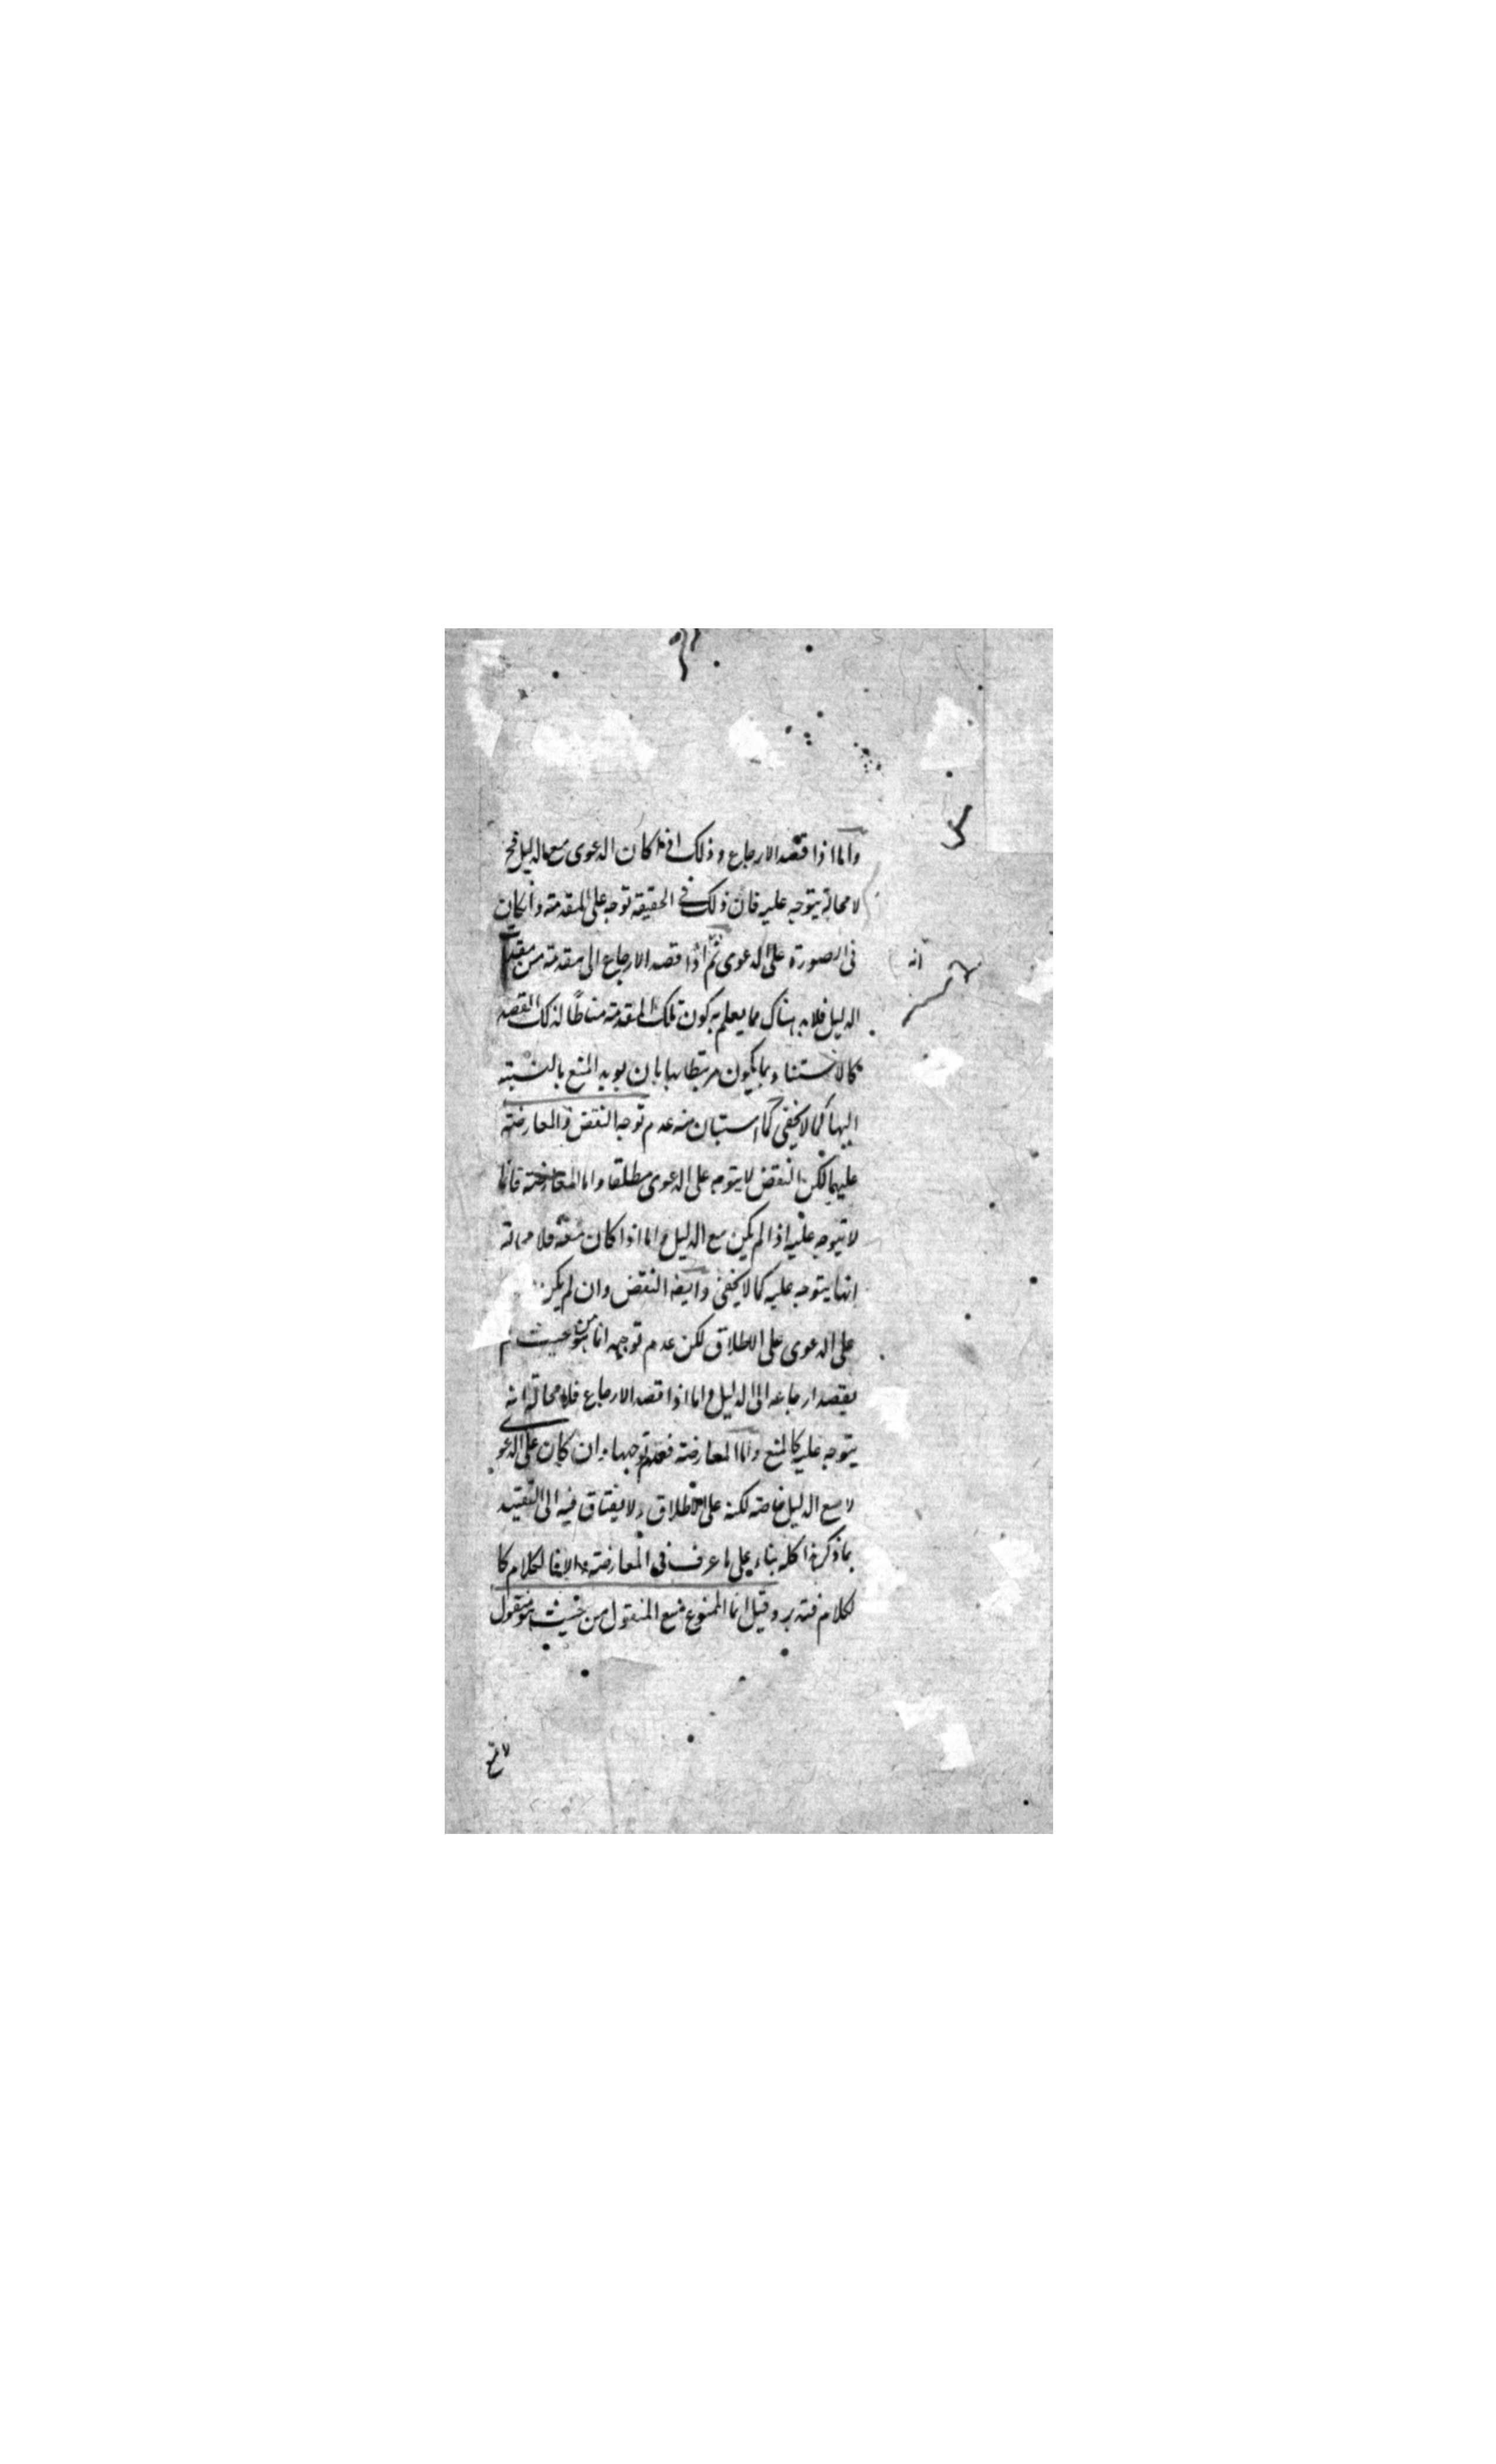 واما اذا قصد الارجاع وذلك اذا كان الدعوى مع الدليل فح
لا محالة يتوجه عليه فان ذلك في الحقيقة توجه على المقدمة وان كان
في الصورة على الدعوى ثم اذا قصد الارجاع الى مقدمة من
الدليل فلا بد هناك مما يعلم به كون تلك المقدمة مناطا لذلك القصد
كالاستناد بما يكون مرتبطا بها بان يويد المنع بالنسبة
اليها كما لا يخفى كما استبان منه عدم توجه النقض والمعارضة
عليهما لكن النقض لا يتوجه على الدعوى مطلقا واما المعارضة فانما
لا يتوجه عليه اذا لم يكن مع الدليل واما اذا كان معه فلا محالة
انها يتوجه عليه كما لا يخفى وايضا النقض وان لم يكن
على الدعوى على الاطلاق لكن عدم توجهه انما هو من حيث لم
يقصد ارجاعه الى الدليل واما اذا قصد الارجاع فلا محالة انه
يتوجه عليه كالمنع واما المعارضة فعدم توجهها وان كان على الدعو
لا مع الدليل خاصة لكنه على الاطلاق ولا يفتاق فيه الى التقييد
بما ذكر هذا كله بناء على ما عرف في المعارضة والا فالكلام كا
لكلام فتدبر وقيل انما الممنوع منع المنقول من حيث هو منقول
انه
لا مح